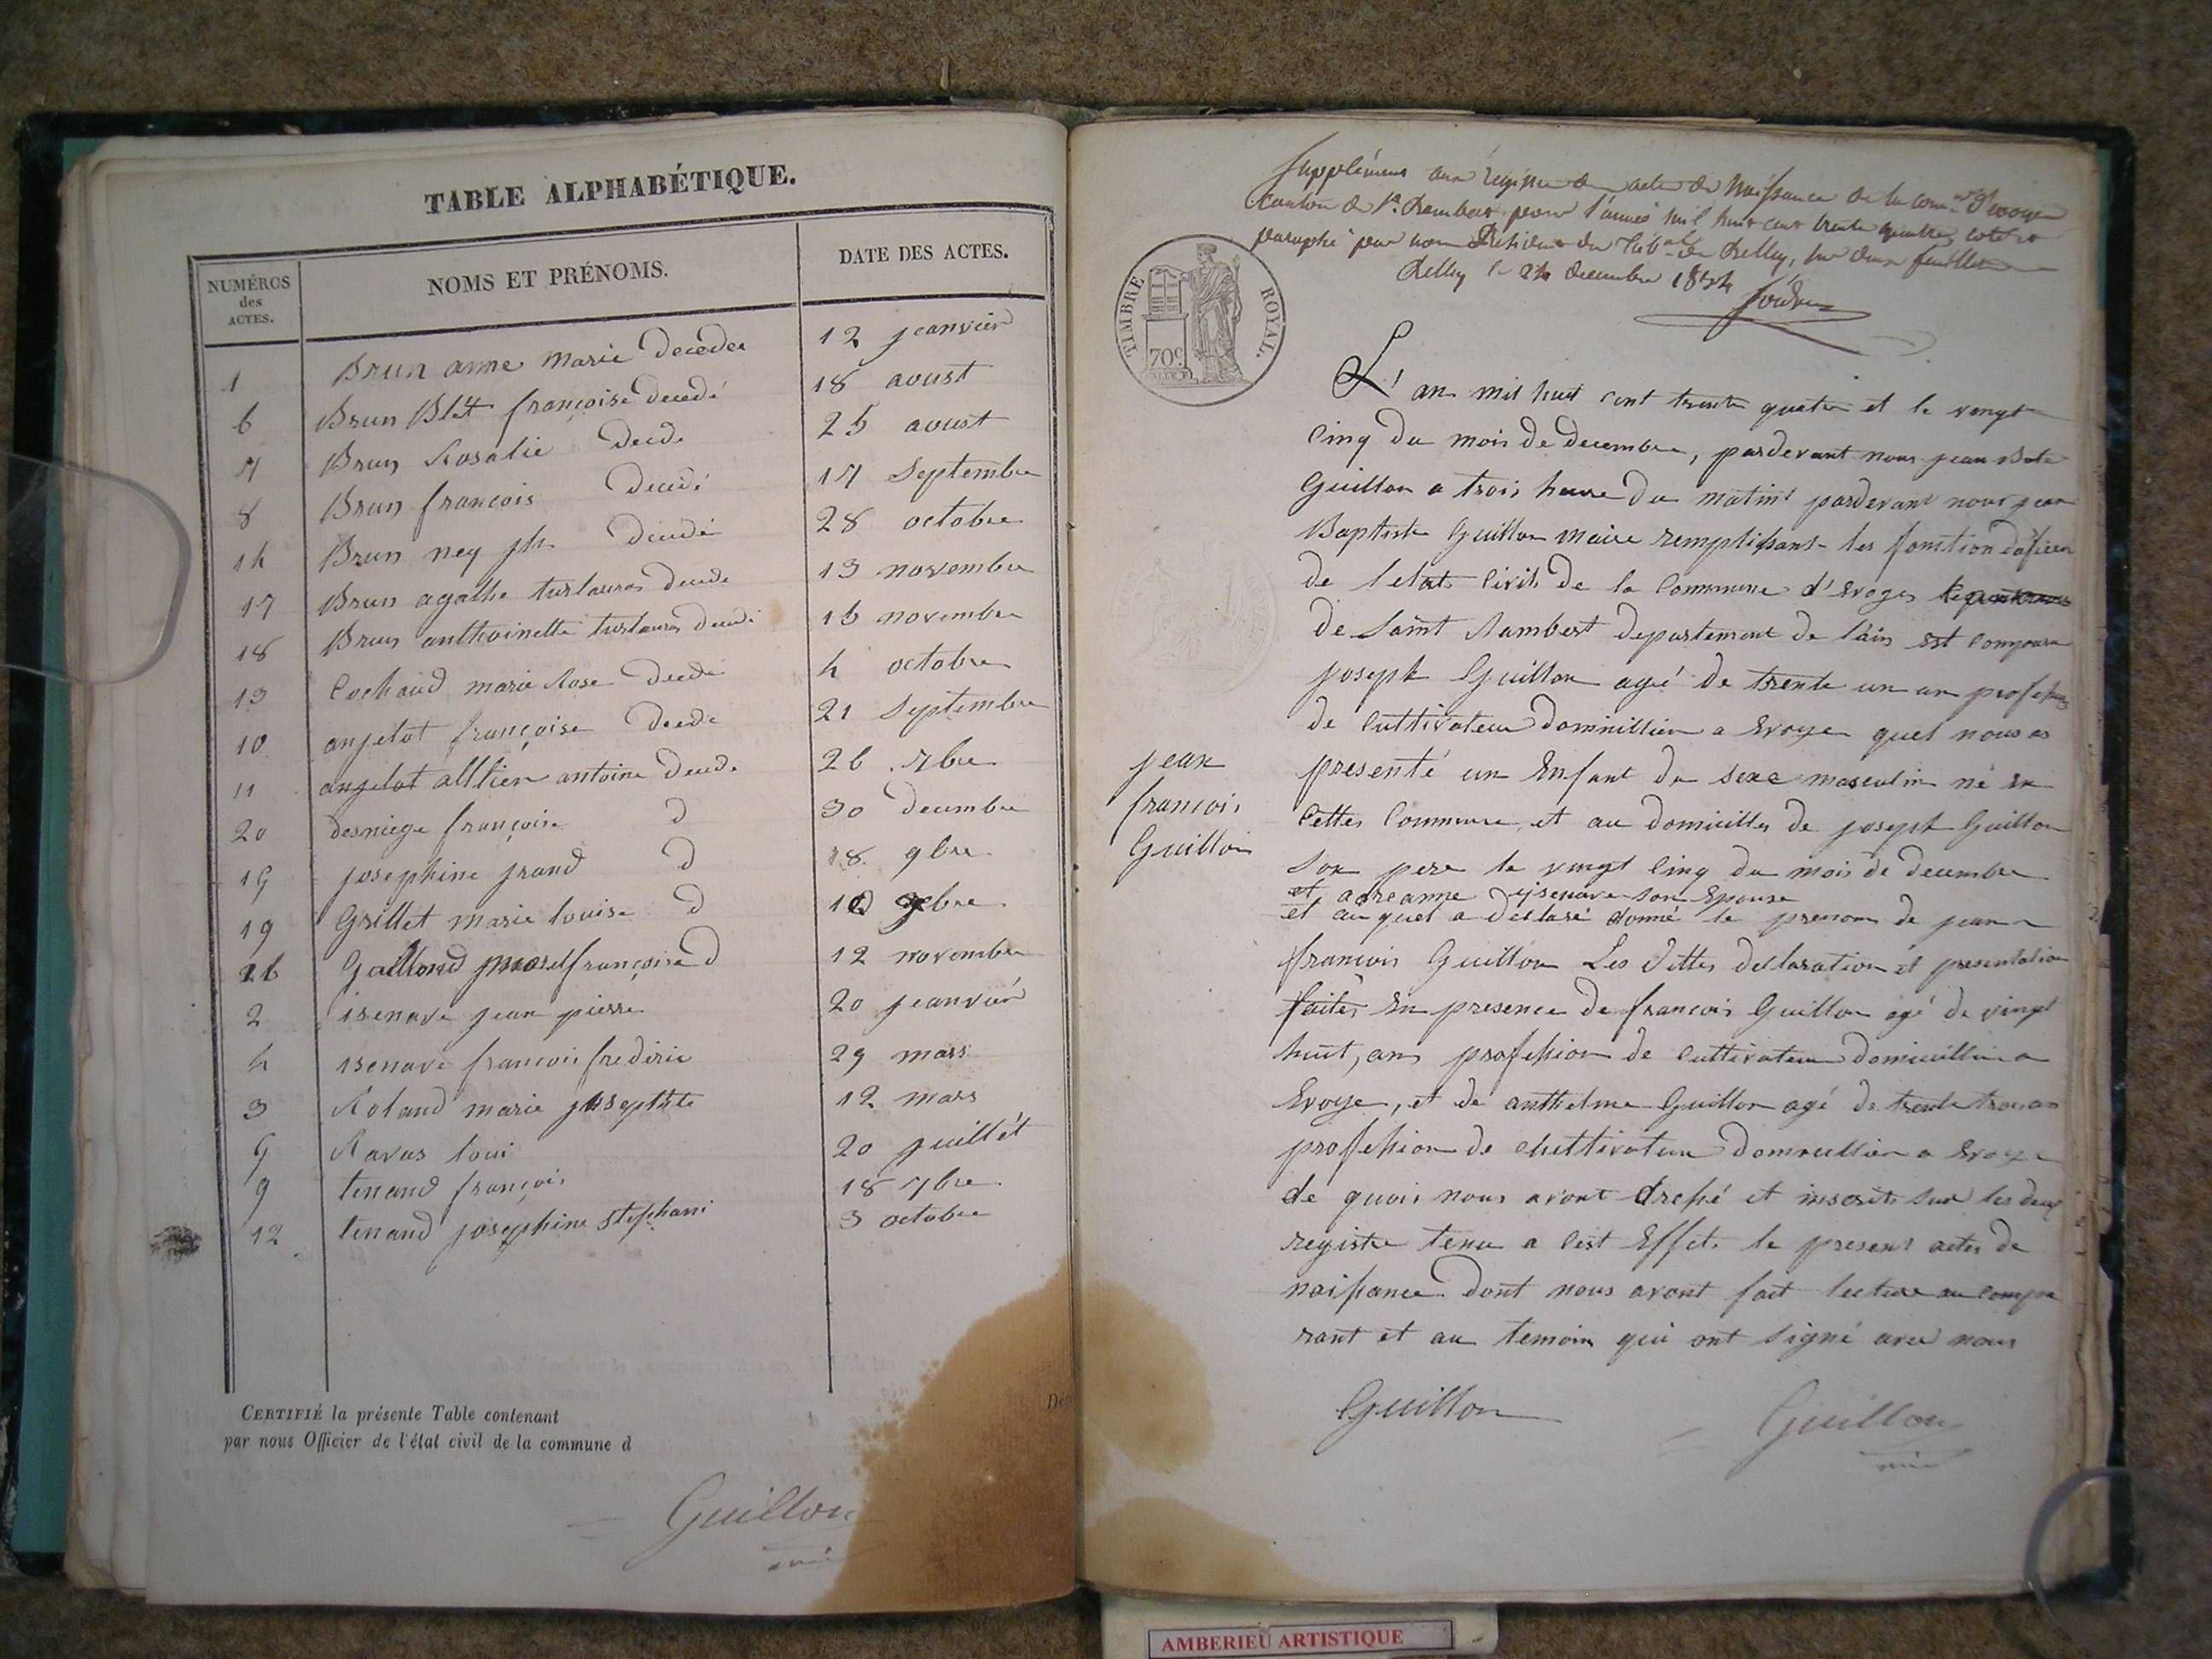 TABLE ALPHABÉTIQUE.
NUMÉROS des ACTES.
NOMS ET PRÉNOMS.
DATE DES ACTES.
1 Brun anne marie decedee 12 jeanvier
6 Brun Blét françoise decedé 18 aoust
7 Brun Rosalie decede 25 aoust
8 Brun françois decedé 17 Septembre
14 Brun ney jh decedé 28 octobre
17 Brun agathe decede 13 novembre
18 Brun anthoinette decedé 16 novembre
13 Cochaud marie Rose decede 4 octobre
10 anjelot françoise decede 21 Septembre
11 anjelot alltier antoine decede 26 7bre
20 desniege françoise d 30 decembre
15 josephine d 18 9bre
19 Grillet marie louise d
16 françoise d 12 novembre
2 isenave jean pierre 20 jeanvier
4 isenave francois frederic 29 mars
3 Roland marie 12 mars
5 Ravas loui 20 juillét
9 tenand françois 18 7bre
12 tenand josephine Stephani 3 octobre
CERTIFIÉ la présente Table contenant
par nous Officier de l'état civil de la commune d
Guillon
Supplément aux registre de acte de Naissance de la
canton de St. Rambert pour l'année mil huit cent trente quatre, coté et
paraphé par nous Président du de Belley, sur deux feuillets
Belley le décembre 1834
TIMBRE ROYAL.
70c
L'an mil huit cent trente quatre et le vingt
cinq du mois de decembre, pardevant nous jean Bste
Guillon a trois heure du matint pardevant nous jean
Baptiste Guillon maire remplissant les fonction d'oficier
de l'etat civil de la Commune d'Evoges
de Saint Rambert departement de l'ain est comparu
joseph Guillon agé de trente un an profession
de cultivateur domicillier a Evoge quel nous as
presenté un Enfant du sexe masculin né en
cette Commune, et au domicilles de joseph Guillon
jean
francois
Guillon
son pere le vingt cinq du mois de decembre
et isenave son Epouse
et au quel a declaré donné le prenom de jean
francois Guillon Les dittes declaration et presentation
faites En presence de francois Guillon agé de vingt
huit, ans profession de cultivateur domicillier a
Evoge, et de anthelme Guillon agé de trente trois an
profession de chultivateur domicillier a Evoge
de quois nous avont dressé et inscrits sur les deux
registre tenu a cest Effet le present actes de
naissance dont nous avont fait lecture au compa
rant et au temoin qui ont signé avec nous
Guillon Guillon
AMBERIEU ARTISTIQUE